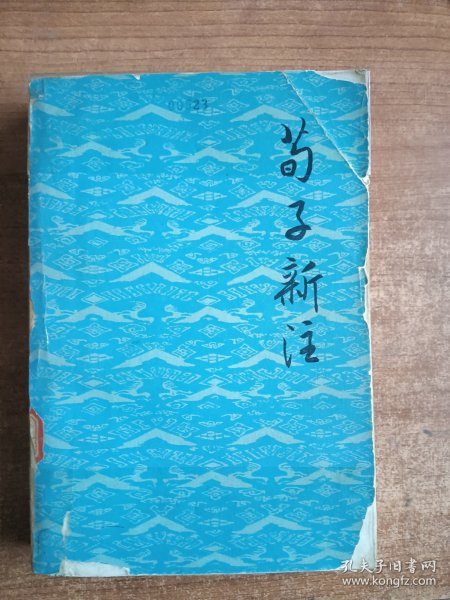 00023
荀子新注
孔夫子旧书网
www.kongfz.com